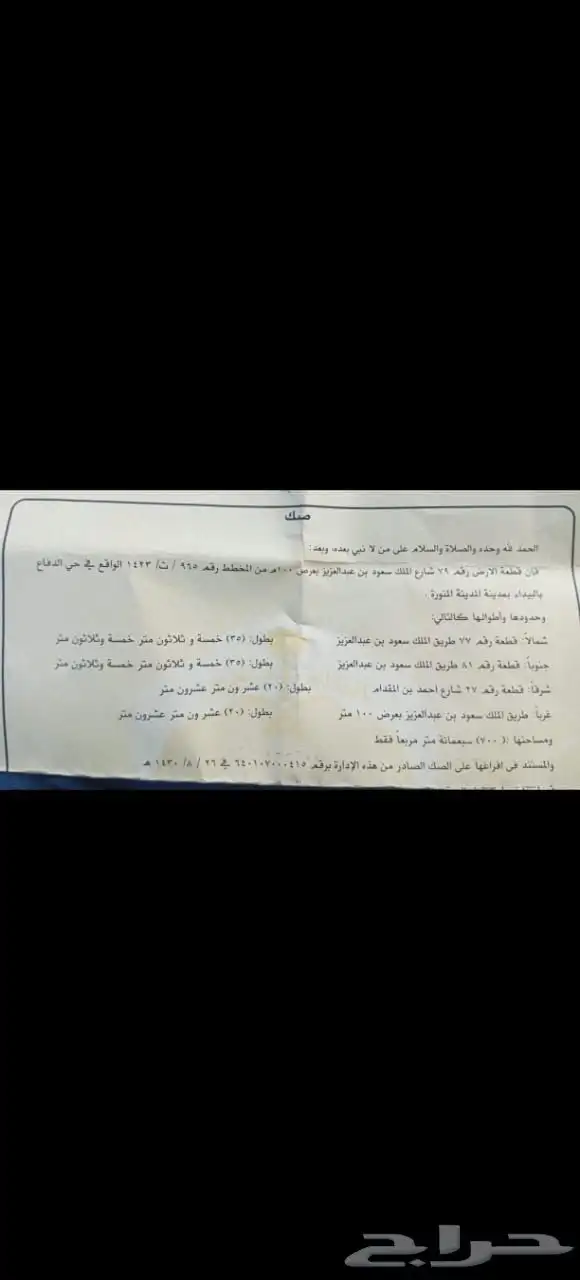 صك
الحمد لله وحده والصلاة والسلام على من لا نبي بعده، وبعد:
فإن قطعة الارض رقم ٧٩ شارع الملك سعود بن عبدالعزيز بعرض ١٠٠م من المخطط رقم ٩٦٥ / ت/ ١٤٢٣ الواقع في حي الدفاع
بالبيداء بمدينة المدينة المنورة .
وحدودها وأطوالها كالتالي:
شمالاً: قطعة رقم ٧٧ طريق الملك سعود بن عبدالعزيز بطول: (٣٥) خمسة و ثلاثون متر خمسة وثلاثون متر
جنوباً: قطعة رقم ٨١ طريق الملك سعود بن عبدالعزيز بطول: (٣٥) خمسة و ثلاثون متر خمسة وثلاثون متر
شرقاً: قطعة رقم ٢٧ شارع احمد بن المقدام بطول: (٢٠) عشر ون متر عشرون متر
غرباً: طريق الملك سعود بن عبدالعزيز بعرض ١٠٠ متر بطول: (٢٠) عشر ون متر عشرون متر
ومساحتها :( ٧٠٠) سبعمائة متر مربعاً فقط
والمستند في افراغها على الصك الصادر من هذه الإدارة برقم ٦٤٠١٠٧٠٠٠٤١٥ في ٢٦ / ٨/ ١٤٣٠ هـ
حراج